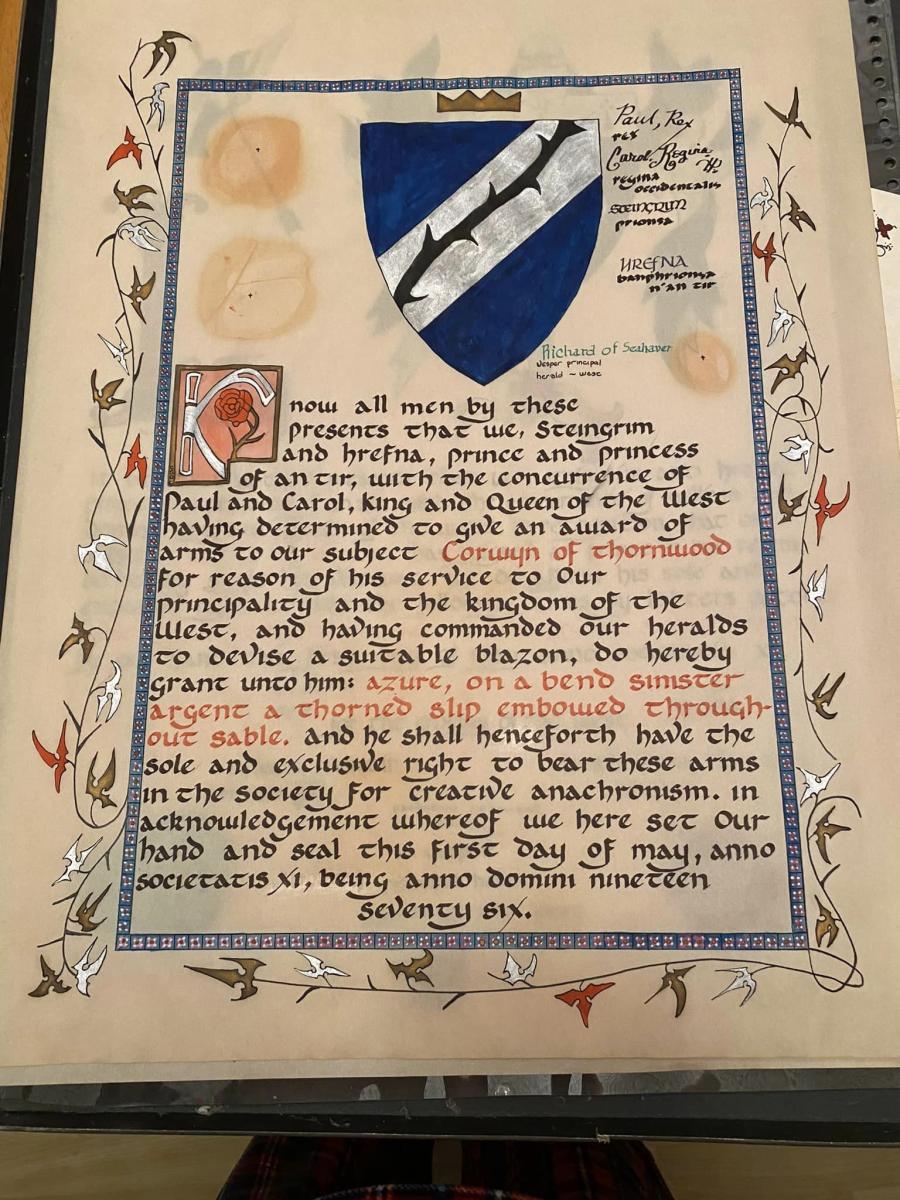 Paul, Rex
rex
Carol, Regina
regina
occidentalis
steingrim
prionsa
HREFNA
banphrionsa
n'an tir
Richard of Seahaven
Vesper principal
herald ~ west
Know all men by these
presents that we, Steingrim
and hrefna, prince and princess
of an tir, with the concurrence of
Paul and Carol, king and Queen of the West
having determined to give an award of
arms to our subject Corwyn of thornwood
for reason of his service to Our
principality and the kingdom of the
West, and having commanded our heralds
to devise a suitable blazon, do hereby
grant unto him: azure, on a bend sinister
argent a thorned slip embowed through-
out sable. And he shall henceforth have the
sole and exclusive right to bear these arms
in the society for creative anachronism. in
acknowledgement whereof we here set Our
hand and seal this first day of may, anno
societatis xi, being anno domini nineteen
seventy six.